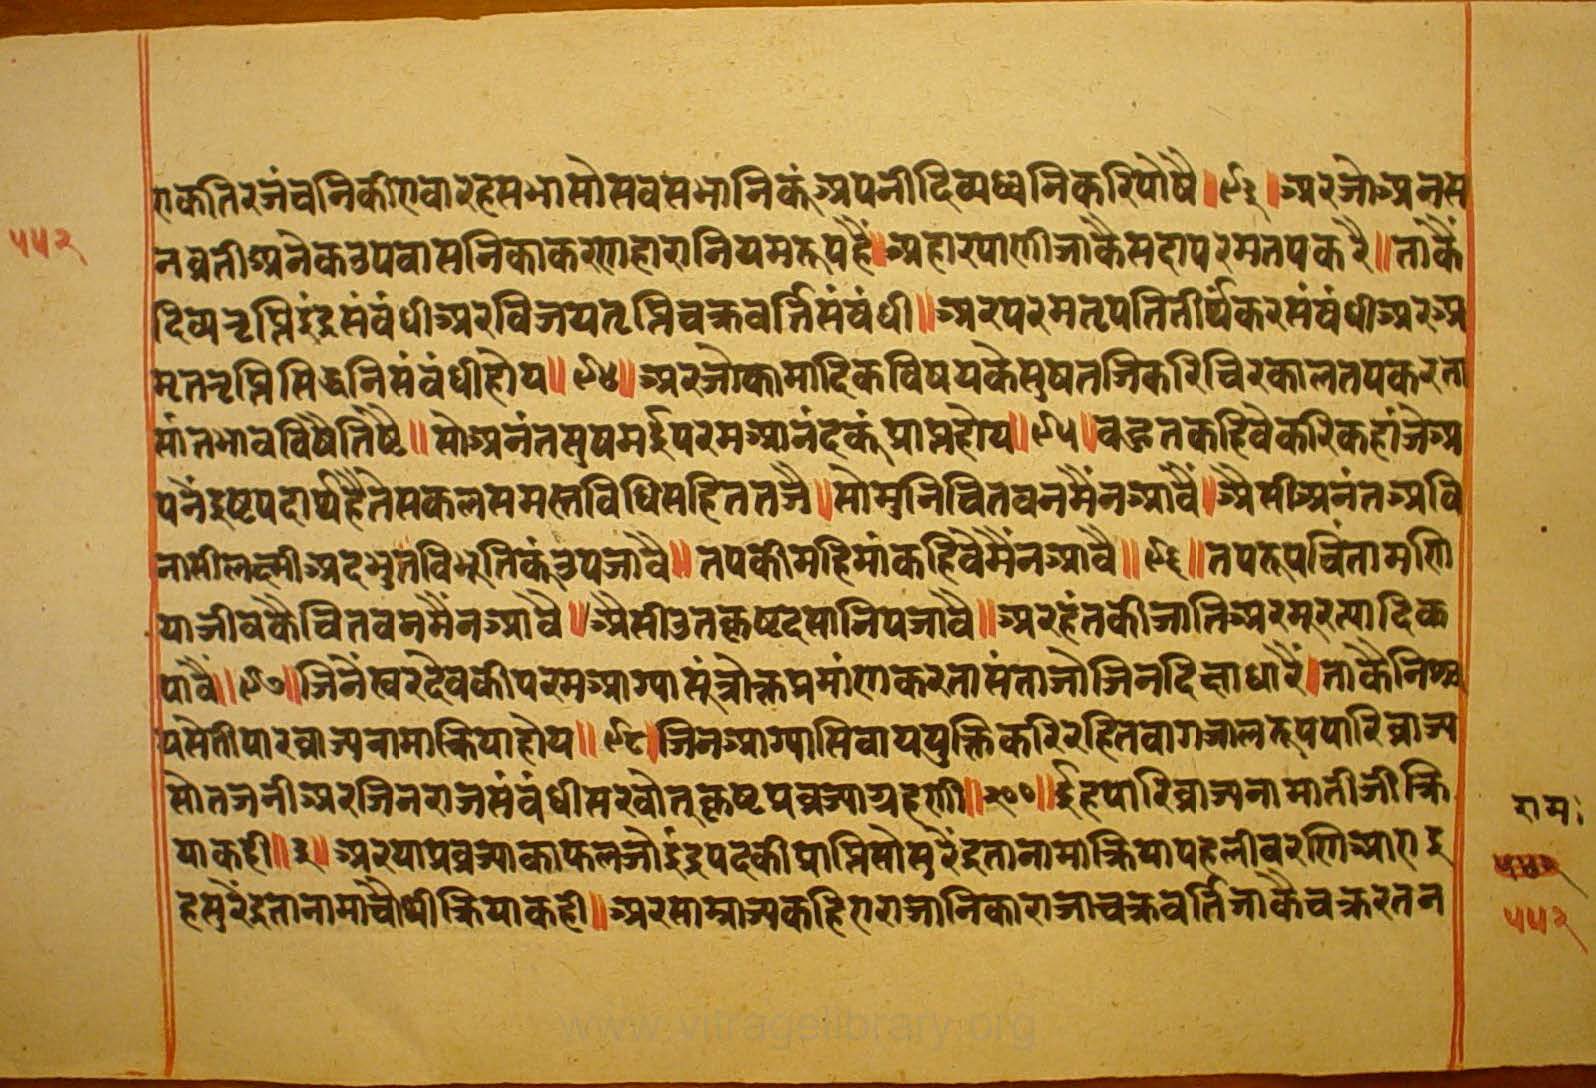 ए कतिरजंचनिकीए वारह सभा सो सव सभानिकूं अपनी दिव्यध्वनिकरि पोषै ॥९३॥ अर जो अनस
५५२
नव्रती अनेक उपवासनिका करणहारा नियमरूप है ॥ अहारपाणी जाकै सदा परम तप करै ॥ ताकै
दिव्यतृप्ति इंद्र संवंधी अर विजयतृप्ति चक्रवर्त्ति संवंधी ॥ अर परमतृपति तीर्थंकर संवंधी अर अ
मृततृप्ति सिद्धनि संवंधी होय ॥९४॥ अर जो कामादिक विषय के सुष तजिकरि चिरकाल तप करता
सांतभाव विषै तिष्टै ॥ सो अनंत सुषमई परम आनंदकूं प्राप्त होय ॥९५॥ वहुत कहिवेकरि कहां जे अ
पनै इष्ट पदार्थ है ते सकल समस्त विधि सहित तजै ॥ सो मुनि चितवनमैं न आवै ॥ ऐसी अनंत अवि
नासी लक्ष्मी अदभुत विभूतिकूं उपजावै ॥ तपकी महिमां कहिवेमैं न आवै ॥९६॥ तपरूप चिंतामणि
या जीवकै चितवनमैं न आवै ॥ ऐसी उतकृष्ट दसा निपजावै ॥ अरहंतकी जाति अर मूरत्यादिक
पावै ॥९७॥ जिनेस्वरदेवकी परम आग्या सूंत्रोक्त प्रमांण करता संता जो जिनदिक्षा धारै ॥ ताकै निश्च
यसेती पारव्राज्यनामा क्रिया होय ॥९८॥ जिनआग्या सिवाय युक्तिकरि रहित वागजालरूप पारिव्राज्य
सो तजनी अर जिनराज संवंधी सरवोतकृष्ट प्रवज्या ग्रहणी ॥२००॥ ईह पारिव्राज्यनामा तीजी क्रि
राम।
या कही ॥३॥ अर या प्रवज्याका फल जो इंद्रपदकी प्राप्ति सो सुरेंद्रतानामा क्रिया पहली वरणि आए इ
५५२
ह सुरेंद्रतानामा चौथी क्रिया कही ॥ अर साम्राज्य कहिए राजानिका राजा चक्रवर्त्ति जाकै चक्ररतन
५५२
www.vitragelibrary.org